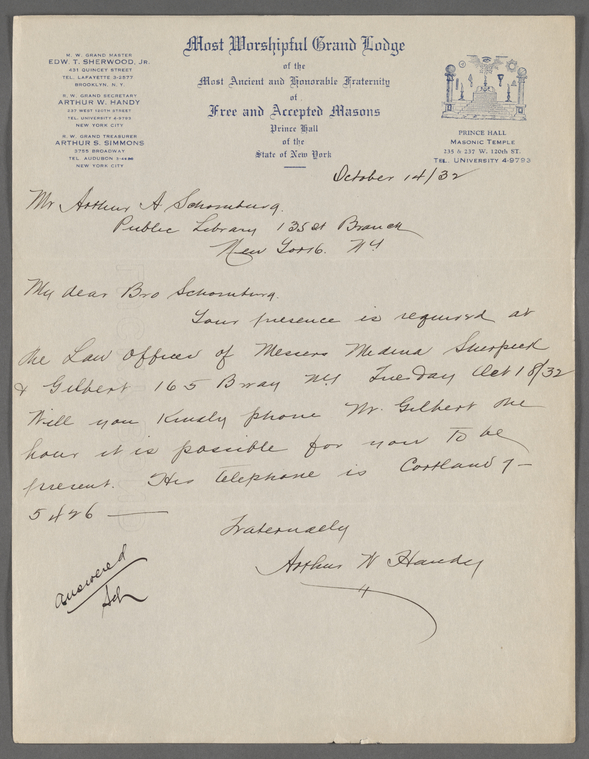 Most Worshipful Grand Lodge
of the
Most Ancient and Honorable Fraternity
of
Free and Accepted Masons
Prince Hall
of the
State of New York
R. W. GRAND MASTER
EDW. T. SHERWOOD, JR.
431 QUINCEY STREET
TEL. LAFAYETTE 3-2577
BROOKLYN, N. Y.
R. W. GRAND SECRETARY
ARTHUR W. HANDY
TEL. UNIVERSITY 4-9793
NEW YORK CITY
R. W. GRAND TREASURER
ARTHUR S. SIMMONS
3785 BROADWAY
TEL. AUDUBON
NEW YORK CITY
PRINCE HALL
MASONIC TEMPLE
235 & 237 W. 120th ST.
TEL. UNIVERSITY 4-9793
October 14/32
Mr Arthur A Schomburg.
Public Library 135 st Branch
New York. NY
My dear Bro Schomburg.
Your presence is required at
the Law Offices of Messers Medina Sherpick
& Gilbert 165 Bway NY Tuesday Oct 18/32
Will you Kindly phone Mr. Gilbert the
hour it is possible for you to be
present. His telephone is Cortland 7-
5426 —
Fraternally
Arthur W Handy
answered